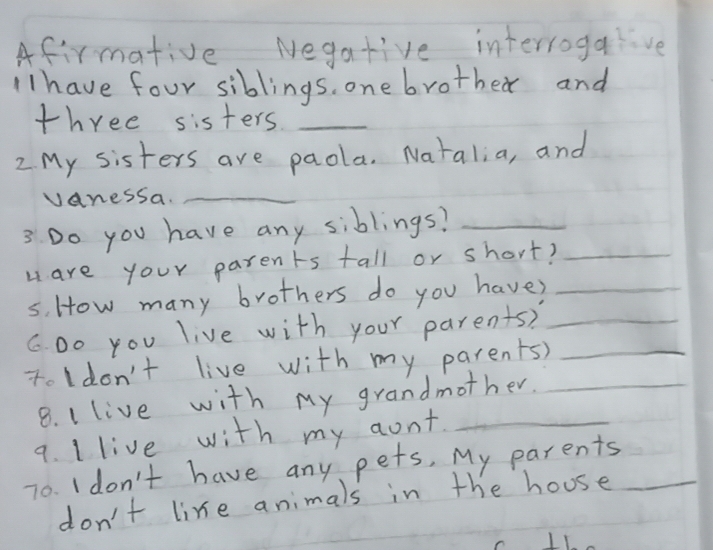 Afirmative Negative interrogative
1 I have four siblings. one brother and
three sisters. ____
2. My sisters are paola. Natalia, and
vanessa. ____
3. Do you have any siblings? ____
4 are your parents tall or short? ____
5. How many brothers do you have? ____
6. Do you live with your parents? ____
7. I don't live with my parents) ____
8. I live with my grandmother. ____
9. I live with my aunt. ____
10. I don't have any pets. My parents
don't like animals in the house ____